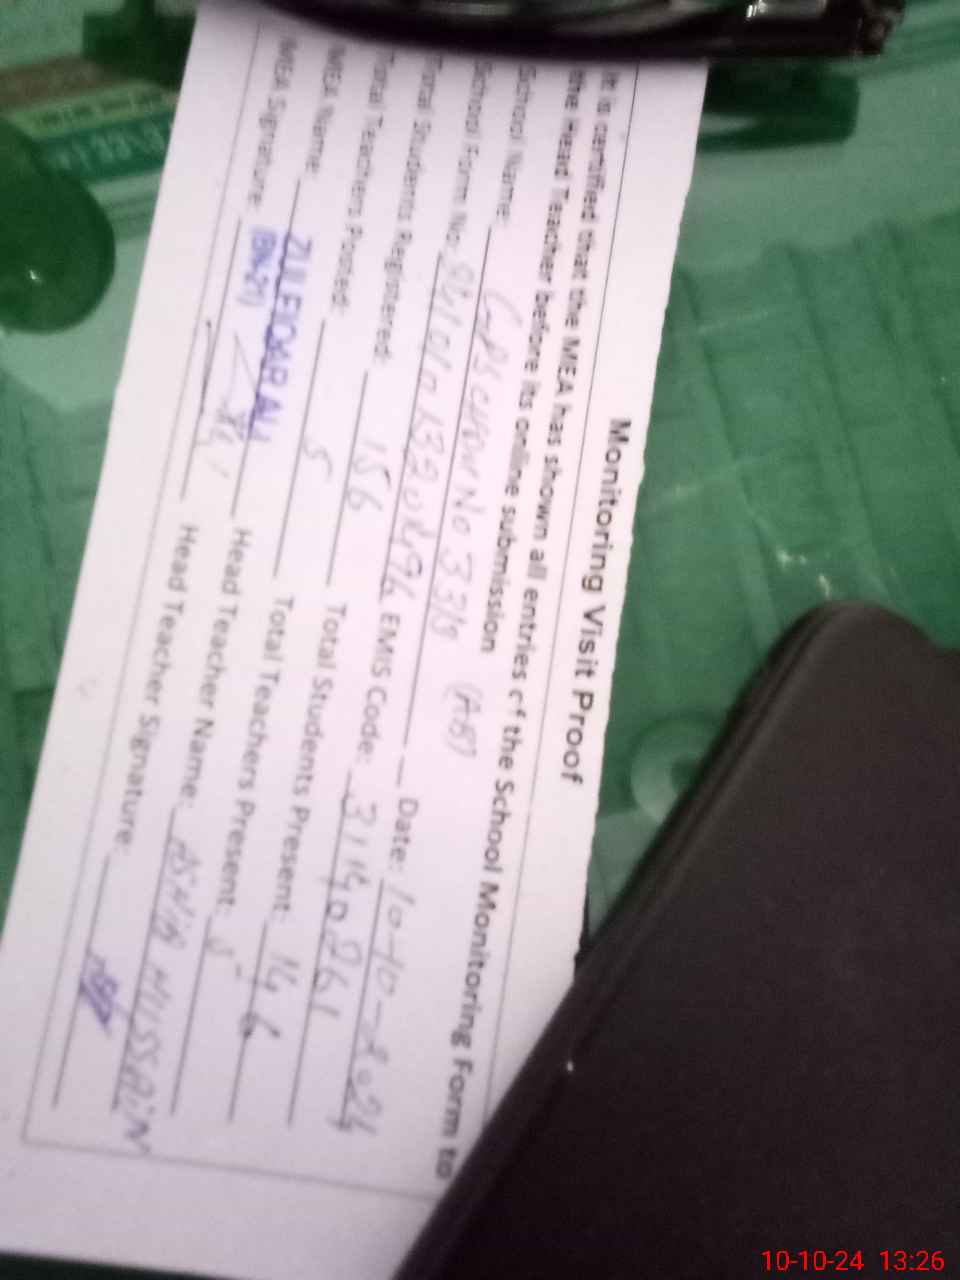 Monitoring Visit Proof
It is certified that the MEA has shown all entries of the School Monitoring Form to
the Head Teacher before its online submission
School Name: No 33/9 (AB)
School Form No: EMIS Code: Date: 10-10-2024
Total Students Registered: 156 Total Students Present: 146
Total Teachers Posted: 5 Total Teachers Present: 5
MEA Name: ZULFIQAR ALI Head Teacher Name: HUSSAIN
MEA Signature: Head Teacher Signature:
10-10-24 13:26